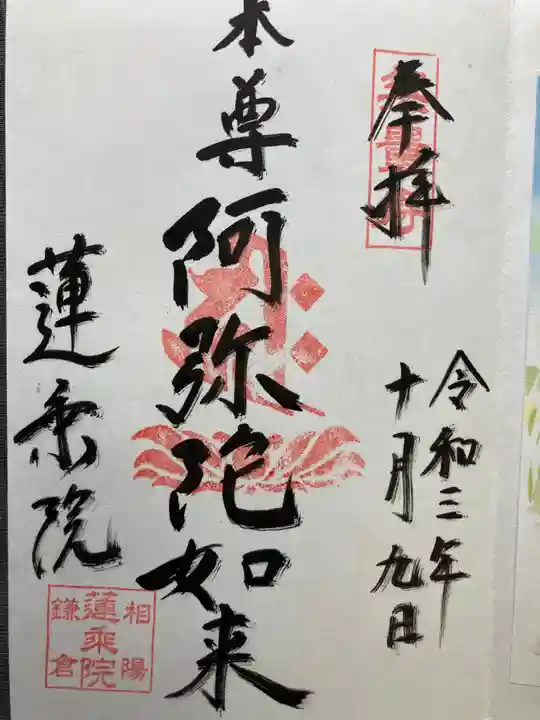 奉拝
令和三年
十月九日
本尊
阿弥陀如来
蓮乗院
相陽
蓮乗院
鎌倉